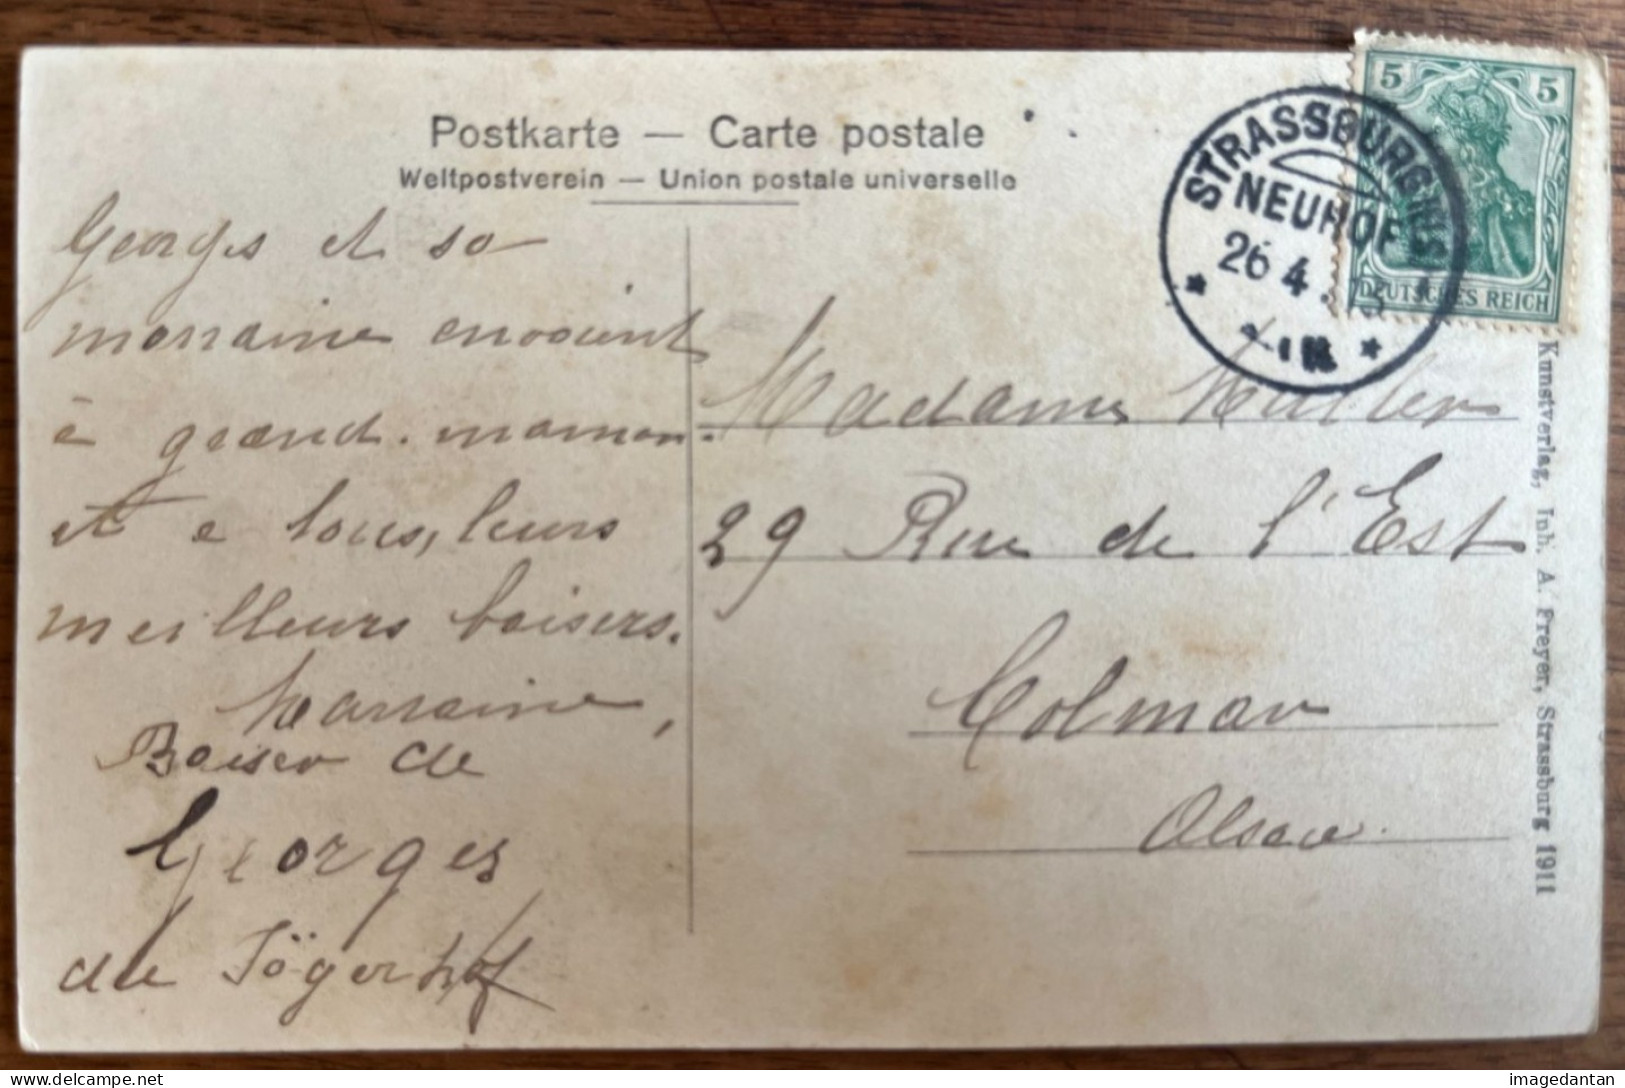 Postkarte — Carte postale
Weltpostverein — Union postale universelle
Georges et sa
marraine envoient
à grand. maman.
et a tous, leurs
meilleurs baisers.
Marraine,
Baiser de
Georges
de Jägerhof
5 5
DEUTSCHES REICH
STRASSBURG (ELS)
NEUHOF
26 4
Madame Muller
29 Rue de l'Est
Colmar
Alsace.
Kunstverlag, Inh. A. Freyer, Strassburg 1911
imagedantan